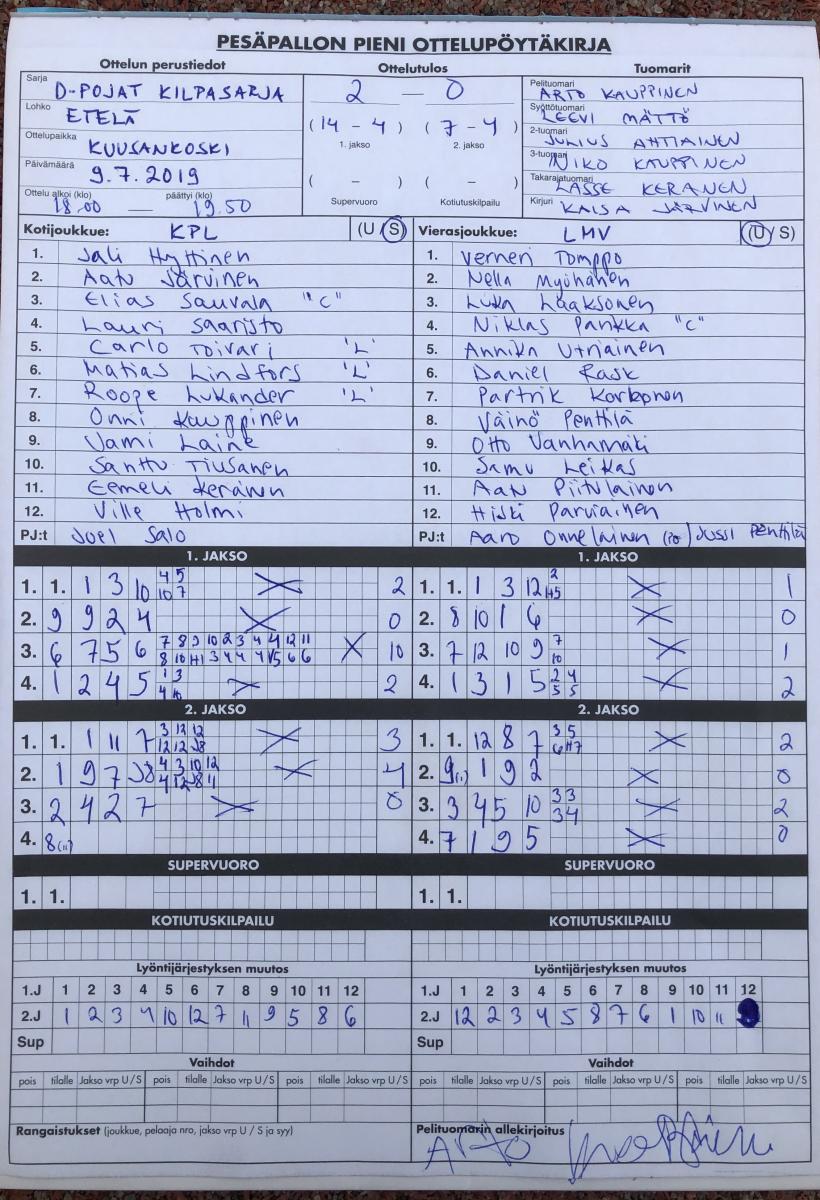 PESÄPALLON PIENI OTTELUPÖYTÄKIRJA
Ottelun perustiedot
Sarja D-POJAT KILPASARJA
Lohko ETELÄ
Ottelupaikka KUUSANKOSKI
Päivämäärä 9.7.2019
Ottelu alkoi (klo) päättyi (klo)
18.00 — 19.50
Ottelutulos
2 — 0
(14 - 4) (7 - 4)
1. jakso 2. jakso
( - ) ( - )
Supervuoro Kotiutuskilpailu
Tuomarit
Pelituomari ARTO KAUPPINEN
Syöttötuomari LEEVI MÄTTÖ
2-tuomari JULIUS AHTIAINEN
3-tuomari NIKO KAUPPINEN
Takarajatuomari LASSE KERANEN
Kirjuri KAISA JÄRVINEN
Kotijoukkue: KPL (U/S)
1. Jali Hyttinen
2. Aatu Järvinen
3. Elias Sauvala "C"
4. Lauri Saaristo
5. Carlo Toivari 'L'
6. Matias Lindfors 'L'
7. Roope Lukander 'L'
8. Onni Kauppinen
9. Vami Laine
10. Santtu Tiusanen
11. Eemeli Keränen
12. Ville Holmi
PJ:t Joel Salo
Vierasjoukkue: LMV (U/S)
1. Verneri Tomppo
2. Nella Myöhänen
3. Luka Laaksonen
4. Niklas Pankka "C"
5. Annika Utriainen
6. Daniel Rask
7. Partrik Korhonen
8. Väinö Penttilä
9. Otto Vanhamäki
10. Samu Leikas
11. Aatu Piitulainen
12. Hiski Parviainen
PJ:t Aaro Onnelainen (PO) Jussi Penttilä
1. JAKSO
1. 1. 1 3 10 2
2. 9 9 2 4 0
3. 6 7 5 6 10
4. 1 2 4 5 2
2. JAKSO
1. 1. 1 11 7 3
2. 1 9 7 J8 4
3. 2 4 2 7 0
4. 8(11)
SUPERVUORO
1. 1.
KOTIUTUSKILPAILU
1. JAKSO
1. 1. 1 3 12 1
2. 8 10 1 6 0
3. 7 12 10 9 1
4. 1 3 1 5 2
2. JAKSO
1. 1. 12 8 7 2
2. 9(1) 1 9 2 0
3. 3 4 5 10 2
4. 7 1 9 5 0
SUPERVUORO
1. 1.
KOTIUTUSKILPAILU
Lyöntijärjestyksen muutos
1.J 1 2 3 4 5 6 7 8 9 10 11 12
2.J 1 2 3 4 10 12 7 11 9 5 8 6
Sup
Vaihdot
pois tilalle Jakso vrp U/S pois tilalle Jakso vrp U/S pois tilalle Jakso vrp U/S
Rangaistukset (joukkue, pelaaja nro, jakso vrp U / S ja syy)
Lyöntijärjestyksen muutos
1.J 1 2 3 4 5 6 7 8 9 10 11 12
2.J 12 2 3 4 5 8 7 6 1 10 11 9
Sup
Vaihdot
pois tilalle Jakso vrp U/S pois tilalle Jakso vrp U/S pois tilalle Jakso vrp U/S
Pelituomarin allekirjoitus
Arto